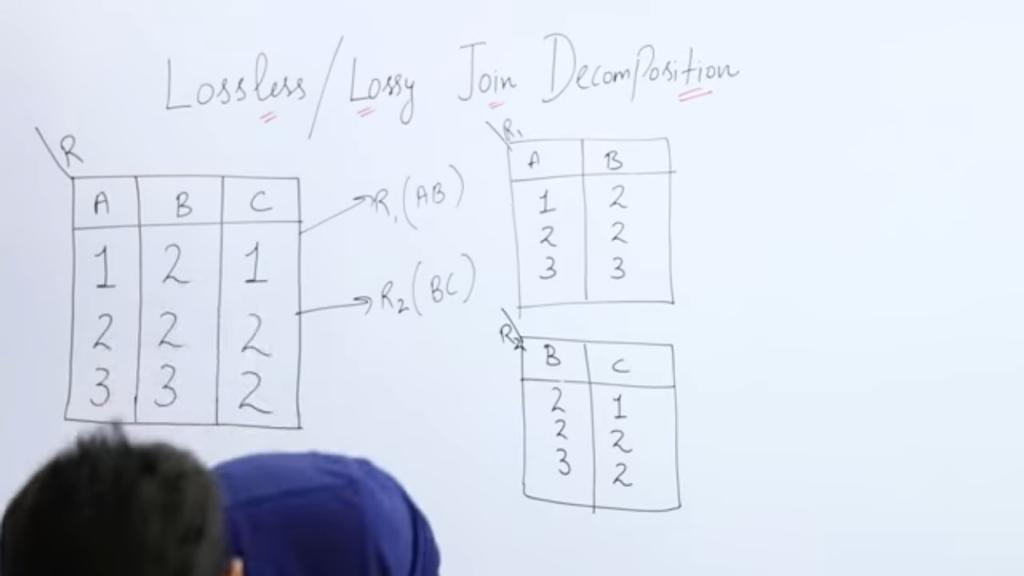 Lossless/Lossy Join Decomposition
R
A B C
1 2 1
2 2 2
3 3 2
R₁(AB)
R₂(BC)
R₁
A B
1 2
2 2
3 3
R₂
B C
2 1
2 2
3 2